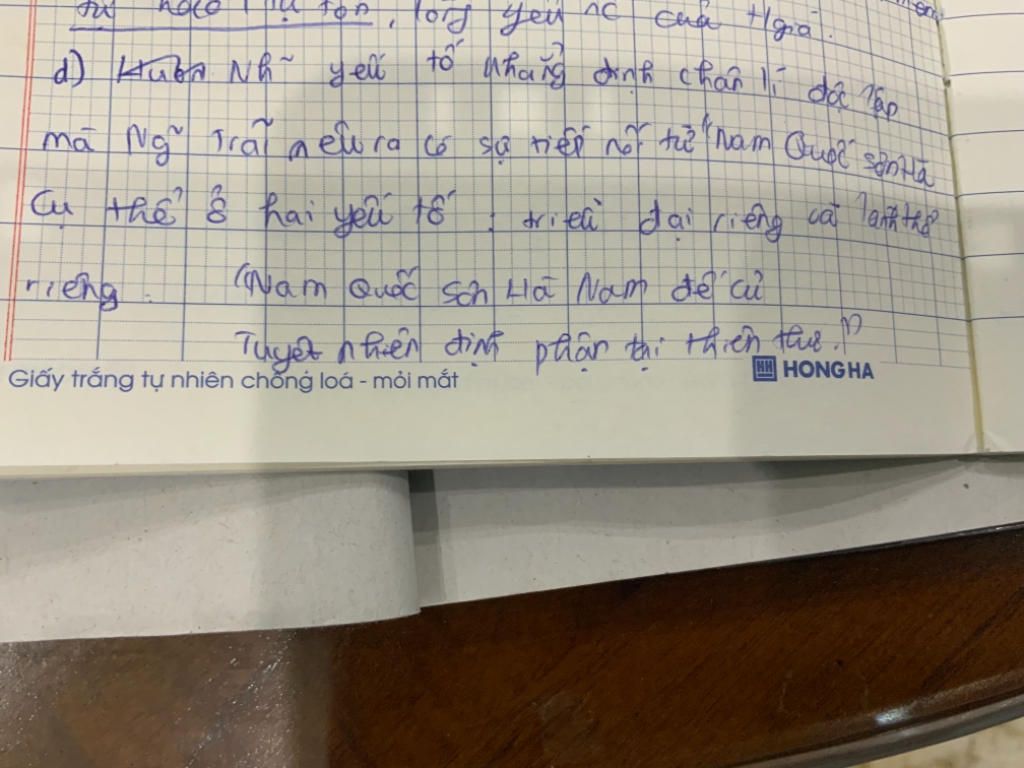 tự hào, tự tôn, lòng yêu nc của tgiả.
d) Nh̃ yếu tố khẳng định chân lí độc lập
mà Ng̃ Trãi nêu ra có sự tiếp nối từ "Nam Quốc sơn Hà
Cụ thể ở hai yếu tố : triều đại riêng và lãnh thổ
riêng. "Nam Quốc sơn Hà Nam đế cư
Tuyệt nhiên định phận tại thiên thư."
Giấy trắng tự nhiên chống loá - mỏi mắt
HH HONG HA